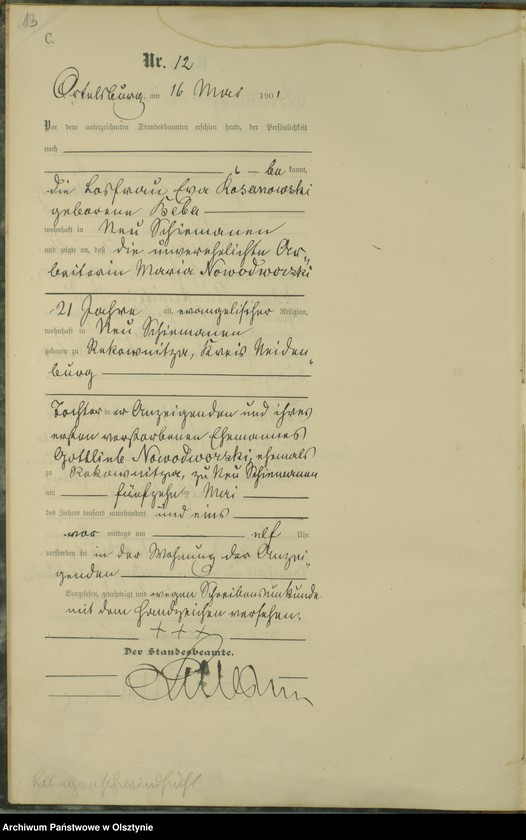 13
C.
Nr. 12
Ortelsburg, am 16 Mai 1901
Vor dem unterzeichneten Standesbeamten erschien heute, der Persönlichkeit
nach
be kannt,
die Losfrau Eva Kosanowski
geborene Keba
wohnhaft in Neu Schiemanen
und zeigte an, daß die unverehelichte Ar-
beiterin Maria Nowodworzki
21 Jahre alt, evangelischer Religion,
wohnhaft in Neu Schiemanen
geboren zu Rekownitza, Kreis Neiden-
burg
Tochter der Anzeigenden und ihres
ersten verstorbenen Ehemannes
Gottlieb Nowodworzki, ehemals
zu Rekownitza, zu Neu Schiemanen
am fünfzehn Mai
des Jahres tausend neunhundert und eins
vor mittags um elf Uhr
verstorben sei in der Wohnung der Anzei-
genden
Vorgelesen, genehmigt und wegen Schreibensunkunde
mit dem Handzeichen versehen.
+ + +
Der Standesbeamte.
Lungenschwindsucht
Archiwum Państwowe w Olsztynie